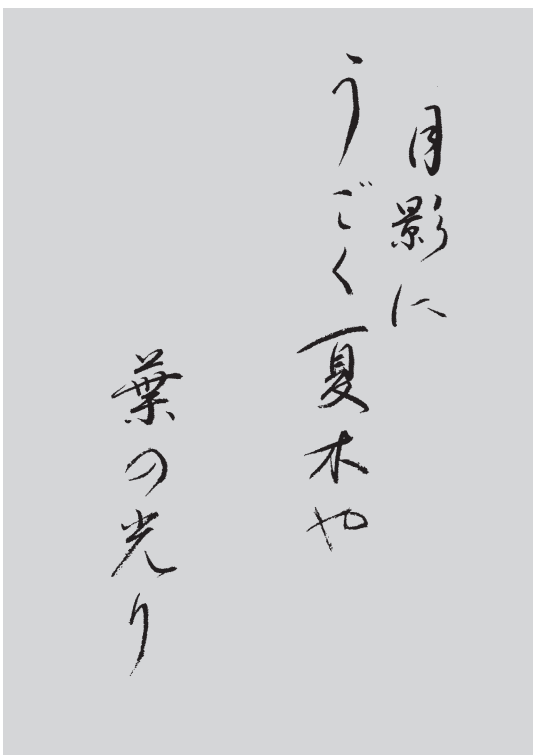 月影に
うごく夏木や
葉の光り